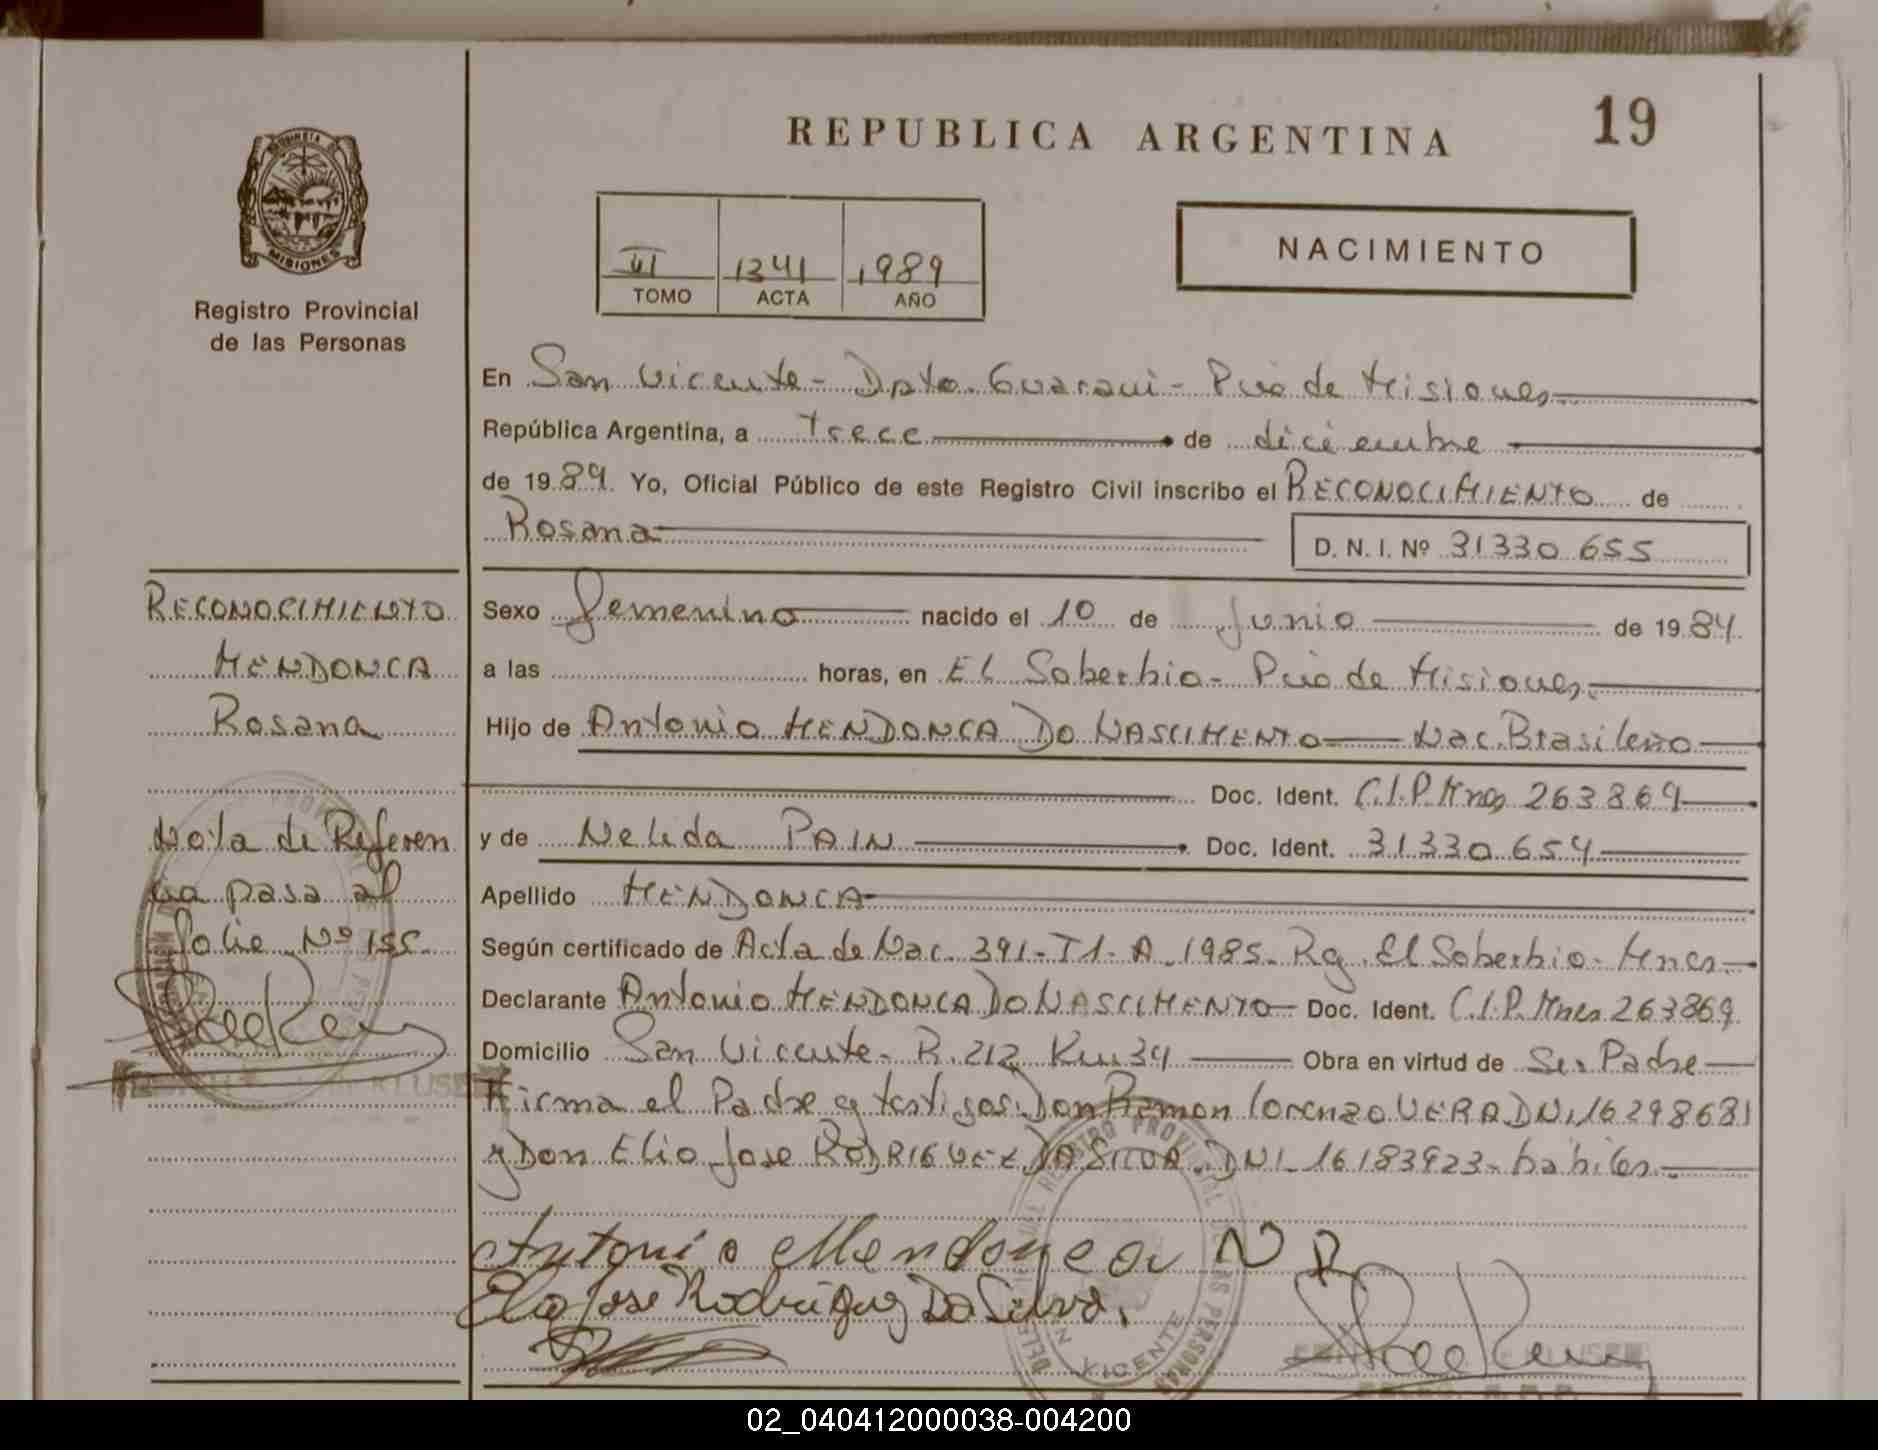 REPUBLICA ARGENTINA
19
PROVINCIA
MISIONES
Registro Provincial
de las Personas
III 1341 1989
TOMO ACTA AÑO
NACIMIENTO
En San Vicente - Dpto. Guarani - Pcia de Misiones
República Argentina, a Trece de diciembre
de 1989. Yo, Oficial Público de este Registro Civil inscribo el RECONOCIMIENTO de
Rosana
D. N. I. Nº 31330 655
RECONOCIMIENTO
MENDONCA
Rosana
Nota de Referen
cia pasa al
folio Nº 155.
Sexo femenino nacido el 10 de Junio de 1984.
a las horas, en El Soberbio - Pcia de Misiones.
Hijo de Antonio MENDONCA DO NASCIMENTO Nac. Brasileño
Doc. Ident. C.I.P. Mnes 263869
y de Nelida PAIN Doc. Ident. 31330 654
Apellido MENDONCA
Según certificado de Acta de Nac. 391 - T1 - A. 1985. Rg. El Soberbio - Mnes.
Declarante Antonio MENDONCA DO NASCIMENTO Doc. Ident. C.I.P. Mnes 263869
Domicilio San Vicente - R. 212 Km 34 Obra en virtud de Ser Padre
Firma el Padre y testigos: Don Ramon Lorenzo VERA DNI 16298681
y Don Elio Jose RODRIGUEZ DA SILVA. DNI - 16183923 - habiles.
Antonio Mendonca N
Elio Jose Rodriguez Da Silva.
VICENTE
02_040412000038-004200